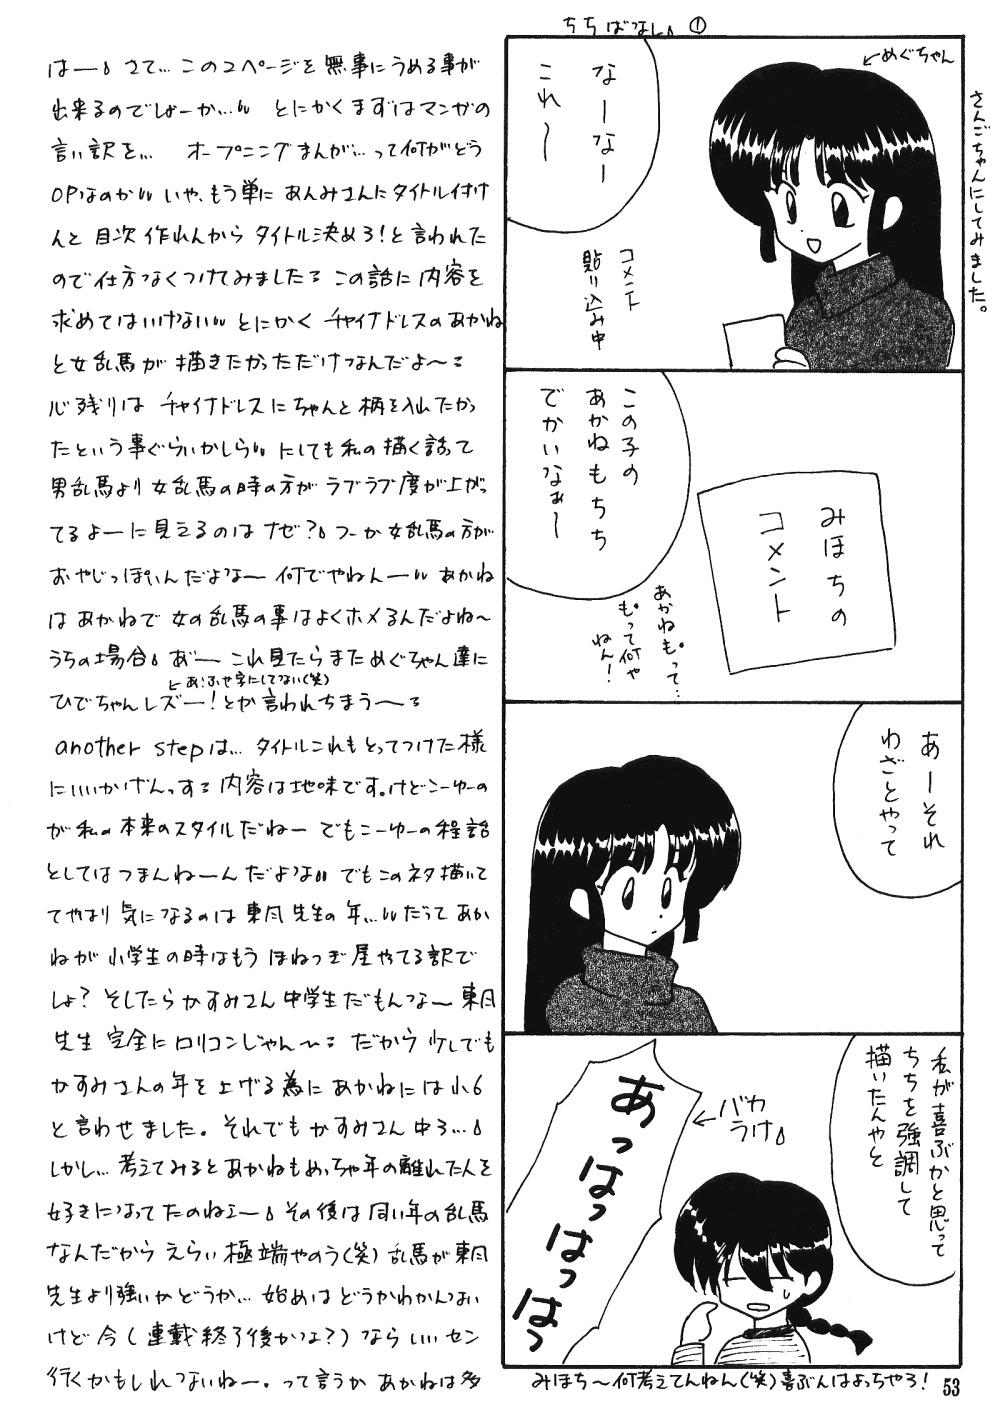 ちちばなし ①
←めぐちゃん
さんごちゃんにしてみました。
なーなー
これ〜
コメント
貼り込み中
この子の
あかねもちち
でかいなぁー
みほちの
コメント
あかねもって…
もって何や
ねん!
あーそれ
わざとやって
私が喜ぶかと思って
ちちを強調して
描いたんやと
←バカ
うけ
あっはっはっはっ
みほち〜何考えてんねん(笑)喜ぶんはよっちやろ!
はー さて… この2ページを無事にうめる事が
出来るのでしょーか… とにかくまずはマンガの
言い訳を… オープニングまんが…って何がどう
OPなのか いや、もう単にあんみさんにタイトル付け
んと目次作れんからタイトル決めろ!と言われた
ので仕方なくつけてみました この話に内容を
求めてはいけない とにかくチャイナドレスのあかね
と女乱馬が描きたかっただけなんだよ〜
心残りはチャイナドレスにちゃんと柄を入れたかっ
たという事ぐらいかしら にしても私の描く話って
男乱馬より女乱馬の時の方がラブラブ度が上がっ
てるよーに見えるのはナゼ? つーか女乱馬の方が
おやじっぽいんだよなー 何でやねんー あかね
はあかねで女の乱馬の事はよくホメるんだよね〜
うちの場合 あ゛ー これ見たらまためぐちゃん達に
あ、ふせ字にしてない(笑)
ひでちゃんレズー!とか言われちまう〜
another stepは… タイトルこれもとってつけた様
にいいかげんっす 内容は地味です。けどこーゆーの
が私の本来のスタイルだねー でもこーゆーの程話
としてはつまんねーんだよな でもこのネタ描いて
てやはり気になるのは東風先生の年… だってあか
ねが小学生の時はもうほねつぎ屋やてる訳で
しょ? そしたらかすみさん中学生だもんなー 東風
先生完全にロリコンじゃん〜 だから少しでも
かすみさんの年を上げる為にあかねには小6
と言わせました。それでもかすみさん中3…
しかし… 考えてみるとあかねもめっちゃ年の離れた人を
好きになってたのねェー その後は同い年の乱馬
なんだからえらい極端やのう(笑) 乱馬が東風
先生より強いかどうか… 始めはどうかわかんない
けど今(連載終了後かな?)ならいいセン
行くかもしれないねー。って言うかあかねは多
53